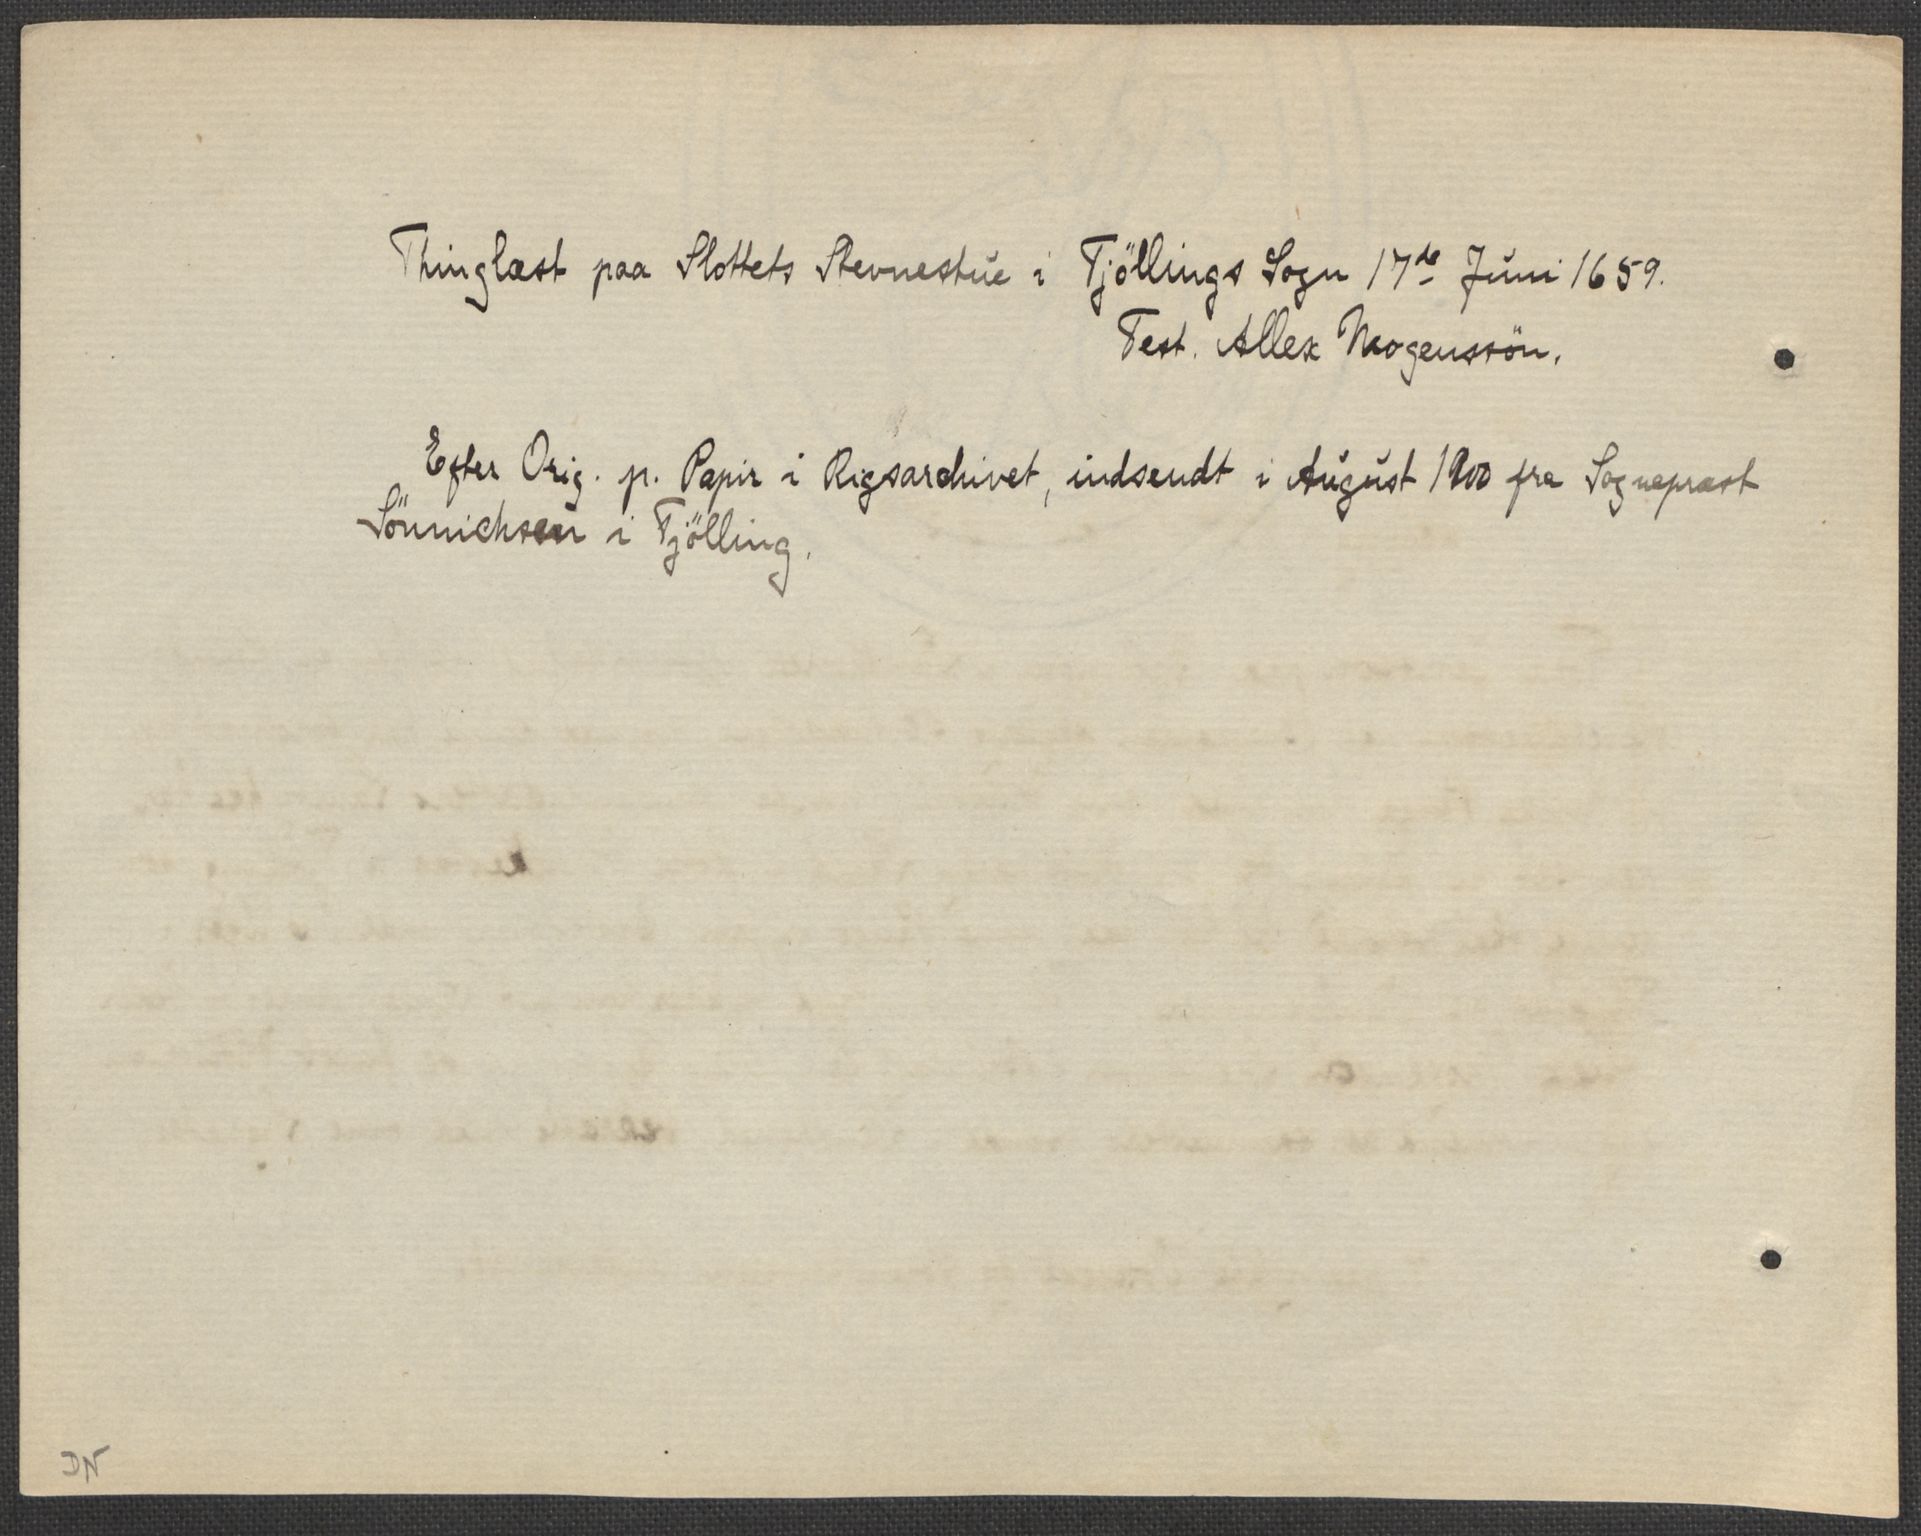 Thinglæst paa Slottets Stevnestue i Tjöllings Sogn 17de Juni 1659.
Test. Allex Mogenssön.
Efter Orig. p. Papir i Rigsarchivet, indsendt i August 1900 fra Sognepræst
Sönnichsen i Tjölling.
DN